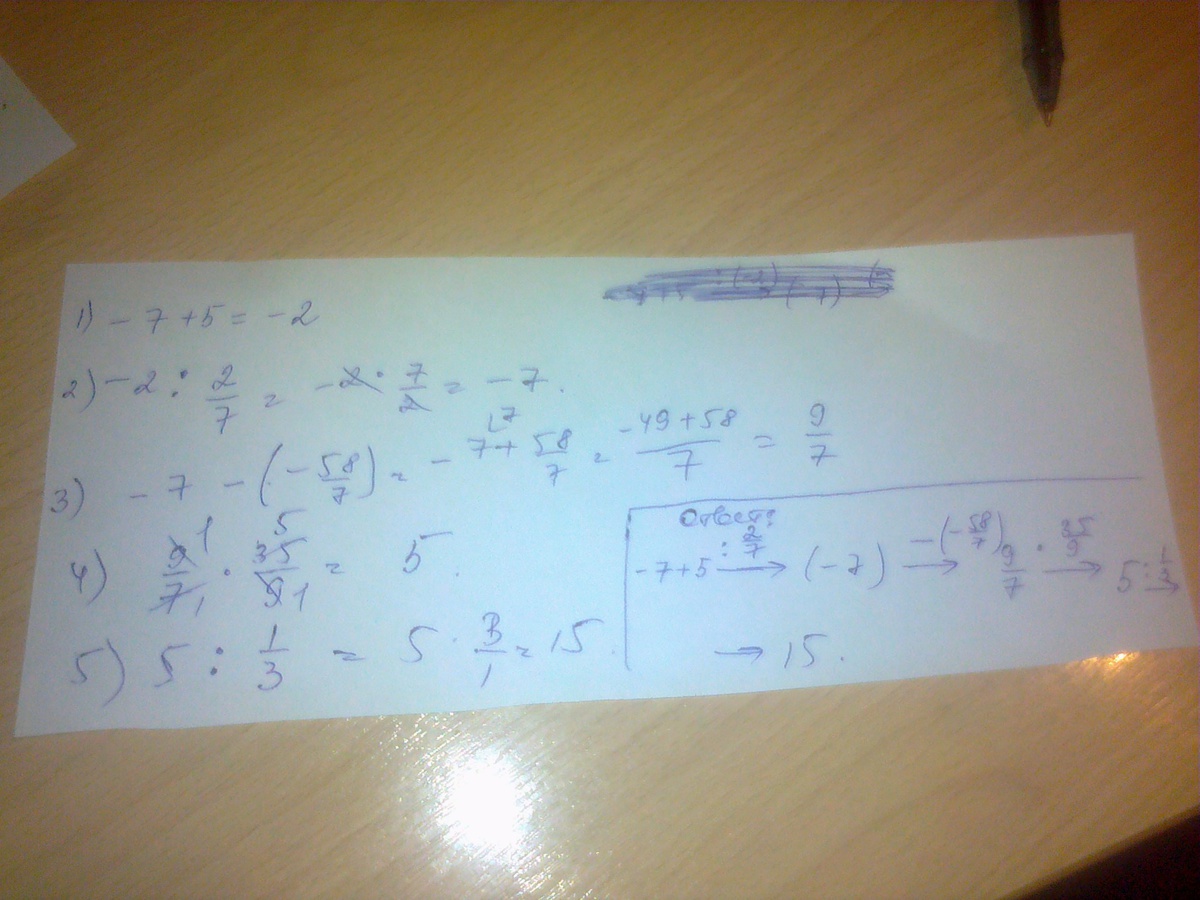 1) - 7 + 5 = -2
2) -2 : 2/7 = -2 · 7/2 = -7.
3) - 7 - (-58/7) = - 7 + 58/7 = (-49+58)/7 = 9/7
4) 9/7 · 35/9 = 5.
5) 5 : 1/3 = 5 · 3/1 = 15.
Ответ:
-7+5 : 2/7 → (-7) -(-58/7) → 9/7 · 35/9 → 5 : 1/3 →
→ 15.